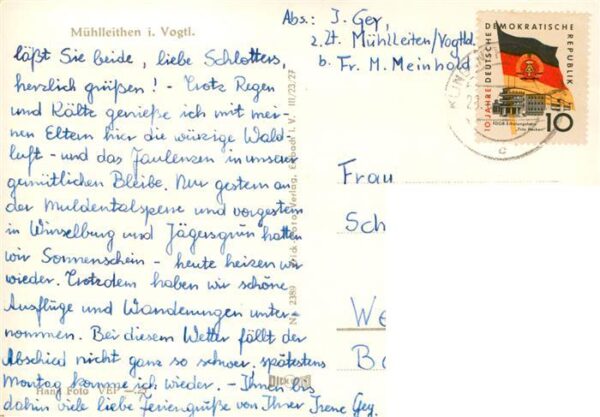 Mühlleithen i. Vogtl.
Abs.: I. Gey,
z. Zt. Mühlleiten/Vogtld.
b. Fr. M. Meinhold
läßt Sie beide, liebe Schlotters,
herzlich grüßen! - Trotz Regen
und Kälte genieße ich mit mei-
nen Eltern hier die würzige Wald-
luft - und das Faulenzen in unserer
gemütlichen Bleibe. Nur gestern an
der Muldentalsperre und vorgestern
in Winselburg und Jägersgrün hatten
wir Sonnenschein - heute heizen wir
wieder. Trotzdem haben wir schöne
Ausflüge und Wanderungen unter-
nommen. Bei diesem Wetter fällt der
Abschied nicht ganz so schwer, spätestens
Montag komme ich wieder. - Ihnen bis
dahin viele liebe Feriengrüße von Ihrer Irene Gey.
Hand Foto
III/23/27
Nr. 2389
10 JAHRE DEUTSCHE DEMOKRATISCHE REPUBLIK
FDGB-Erholungsheim
"Fritz Heckert"
10
c
Frau
Sch
We
Ba